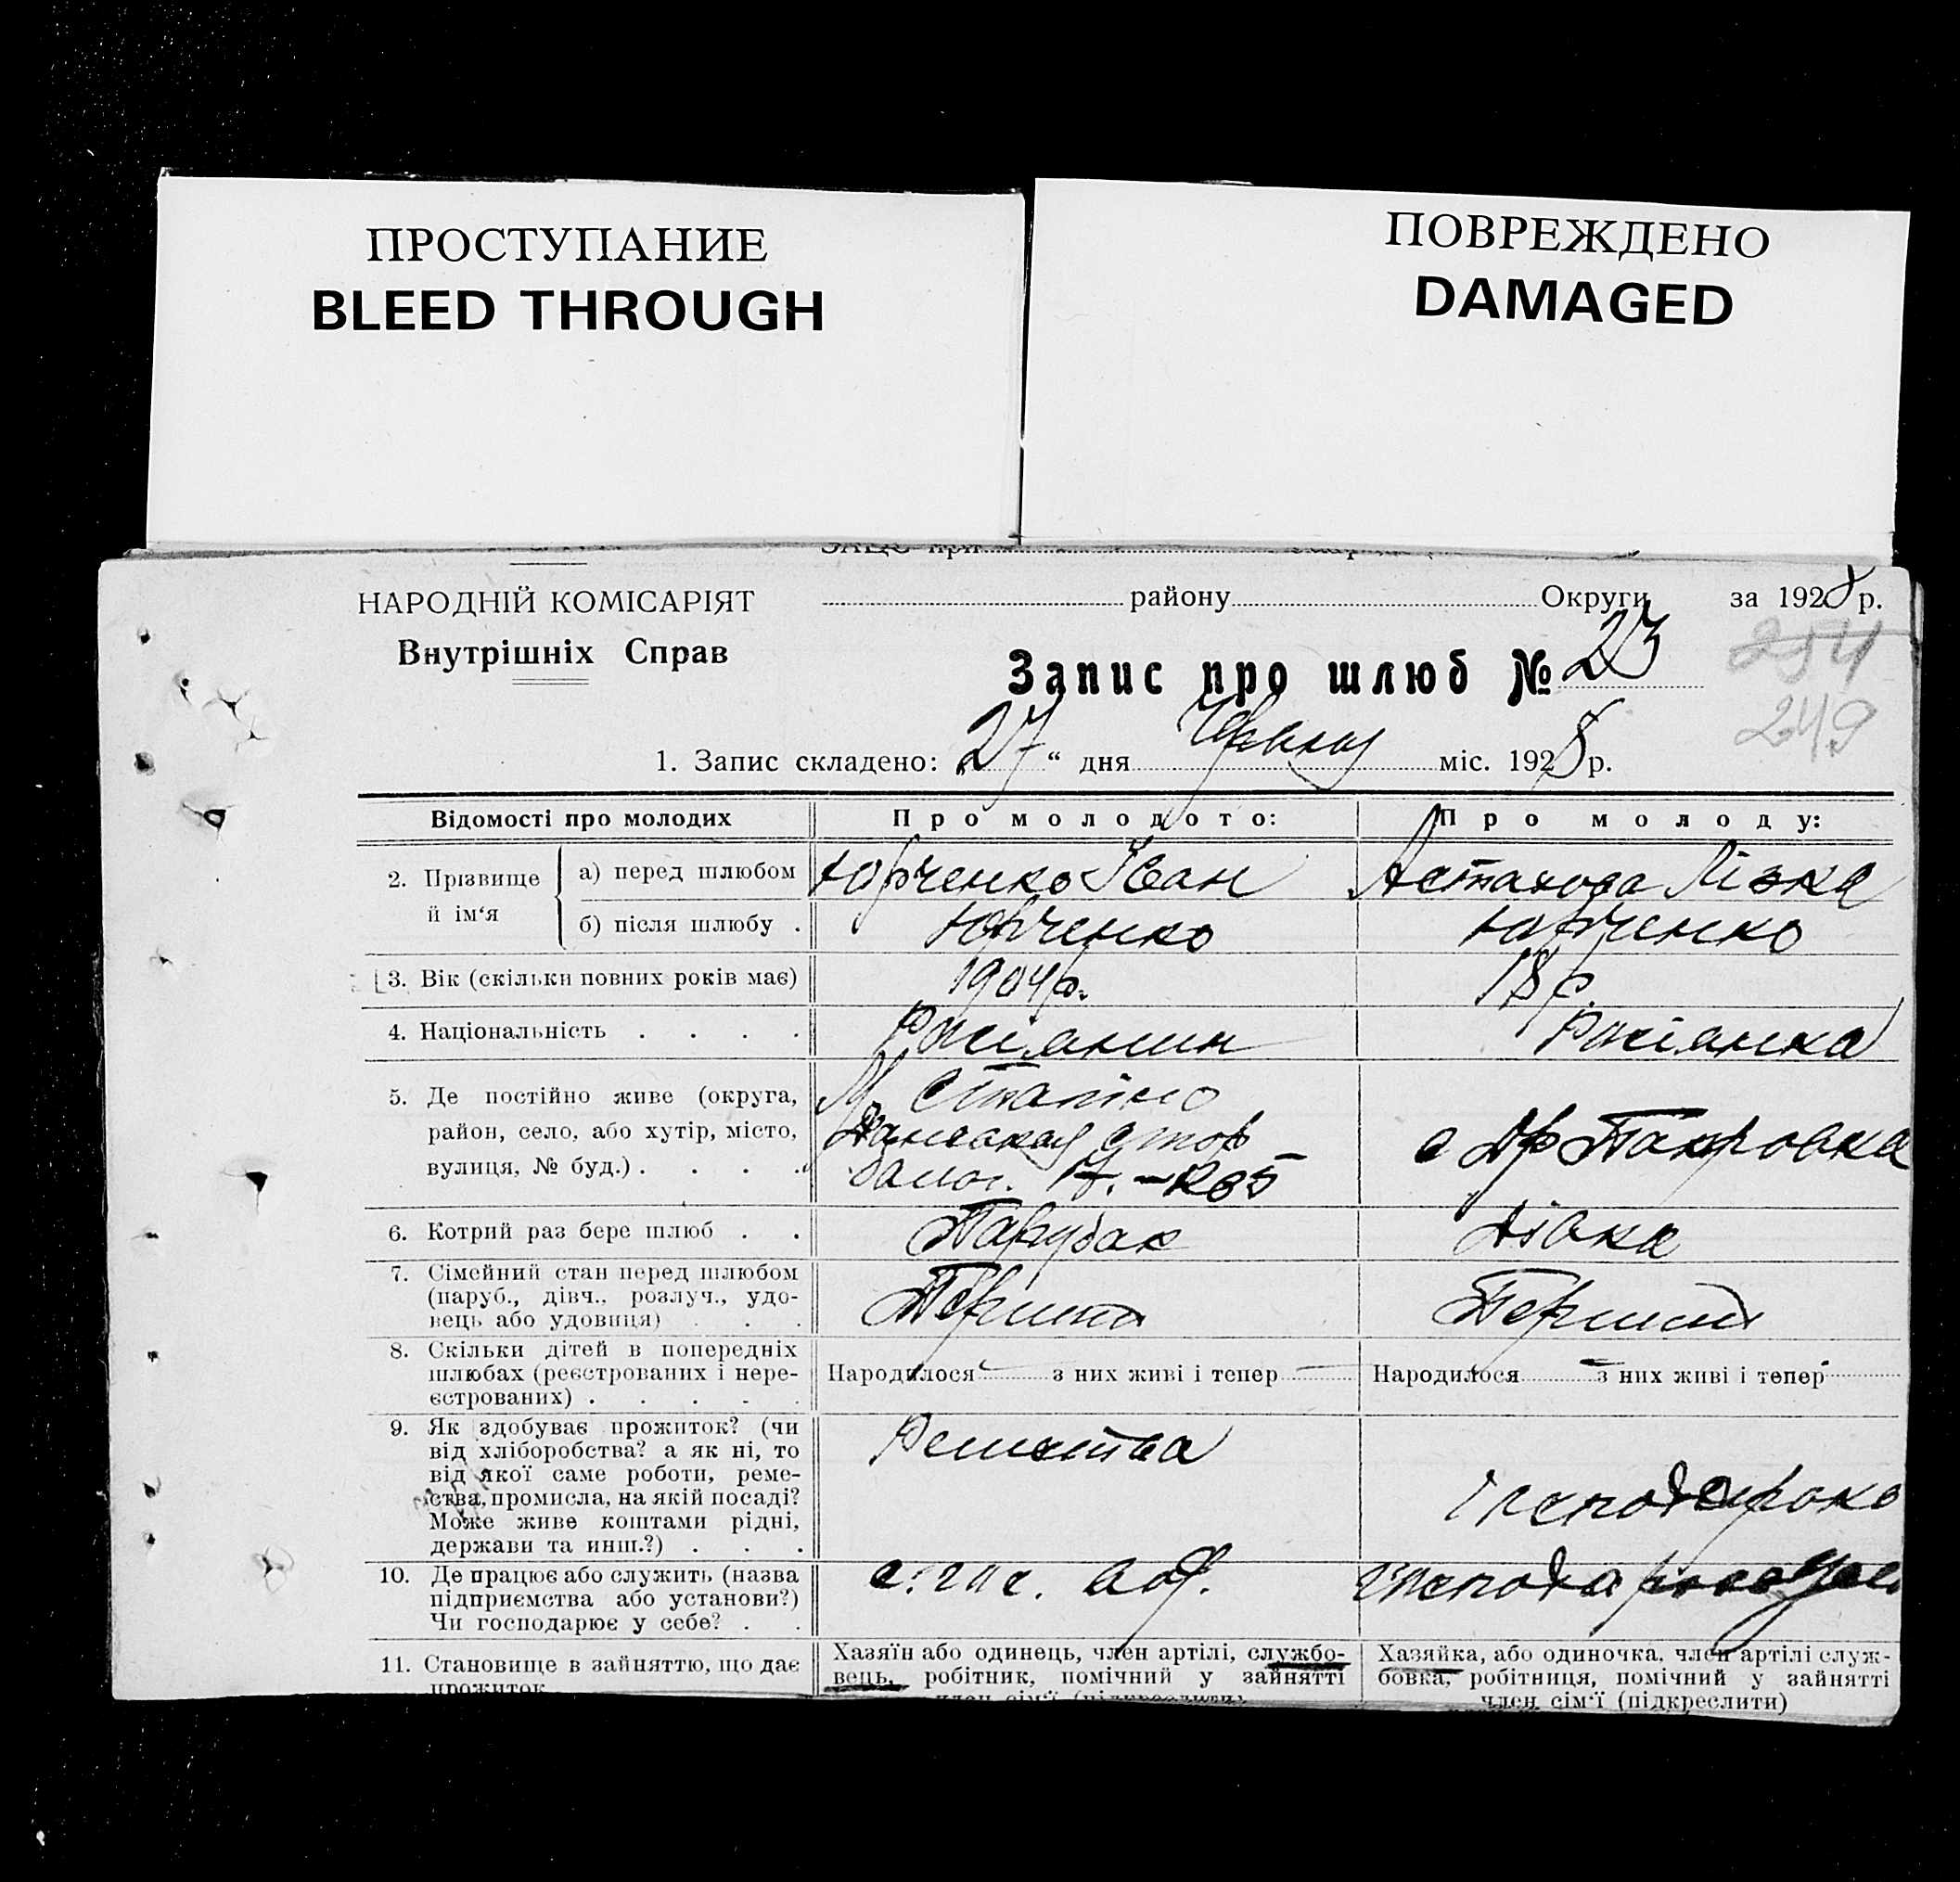 ПРОСТУПАНИЕ
BLEED THROUGH
ПОВРЕЖДЕНО
DAMAGED
ЗАЦС при
НАРОДНІЙ КОМІСАРІЯТ
Внутрішніх Справ
району Округи за 1928 р.
Запис про шлюб № 23
254
249
1. Запис складено: „27“ дня Червня міс. 1928 р.
Відомості про молодих Про молодого: Про молоду:
2. Прізвище й ім‘я а) перед шлюбом Юрченко Іван Астахова Лізка
б) після шлюбу . Юрченко Юрченко
3. Вік (скільки повних років має) 1904 р. 18 р.
4. Національність . . . . Росіянин Росіянка
5. Де постійно живе (округа,
район, село, або хутір, місто,
вулиця, № буд.) . . . .
М. Сталіно
с Др Покровка
6. Котрий раз бере шлюб . . Парубак Дівка
7. Сімейний стан перед шлюбом
(паруб., дівч., розлуч., удо-
вець або удовиця) . . .
Перший Перший
8. Скільки дітей в попередніх
шлюбах (реєстрованих і нере-
єстрованих) . . . . .
Народилося — з них живі і тепер — Народилося — з них живі і тепер -
9. Як здобуває прожиток? (чи
від хліборобства? а як ні, то
від якої саме роботи, реме-
ства, промисла, на якій посаді?
Може живе коштами рідні,
держави та инш.?) . . .
10. Де працює або служить (назва
підприємства або установи?)
Чи господарює у себе? . .
11. Становище в зайняттю, що дає
прожиток
Хазяїн або одинець, член артілі, службо-
вець, робітник, помічний у зайнятті
член сім‘ї (підкреслити)
Хазяйка, або одиночка, член артілі служ-
бовка, робітниця, помічний у зайнятті
член сім‘ї (підкреслити)